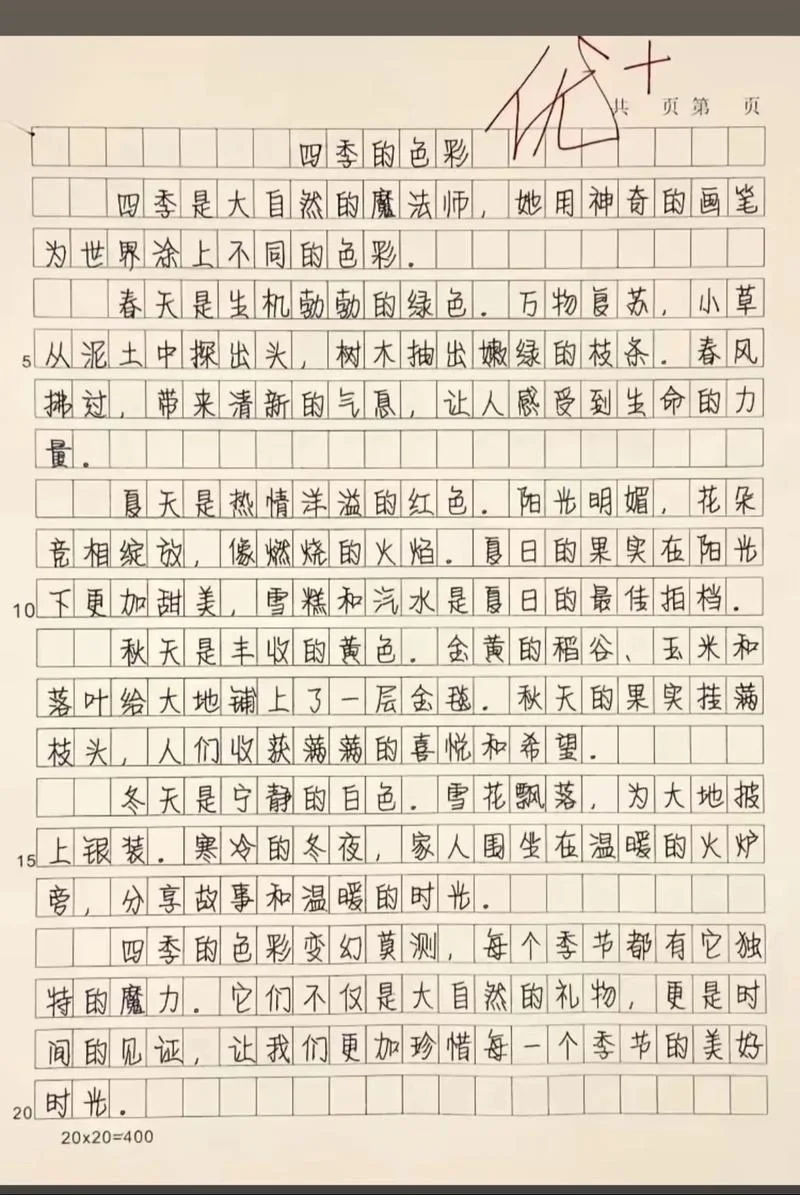 优+
共 页 第 页
四季的色彩
四季是大自然的魔法师，她用神奇的画笔
为世界涂上不同的色彩.
春天是生机勃勃的绿色.万物复苏，小草
5 从泥土中探出头，树木抽出嫩绿的枝条.春风
拂过，带来清新的气息，让人感受到生命的力
量。
夏天是热情洋溢的红色.阳光明媚，花朵
竞相绽放，像燃烧的火焰.夏日的果实在阳光
10 下更加甜美，雪糕和汽水是夏日的最佳拍档.
秋天是丰收的黄色.金黄的稻谷、玉米和
落叶给大地铺上了一层金毯.秋天的果实挂满
枝头，人们收获满满的喜悦和希望.
冬天是宁静的白色.雪花飘落，为大地披
15 上银装.寒冷的冬夜，家人围坐在温暖的火炉
旁，分享故事和温暖的时光.
四季的色彩变幻莫测，每个季节都有它独
特的魔力.它们不仅是大自然的礼物，更是时
间的见证，让我们更加珍惜每一个季节的美好
20 时光.
20x20=400